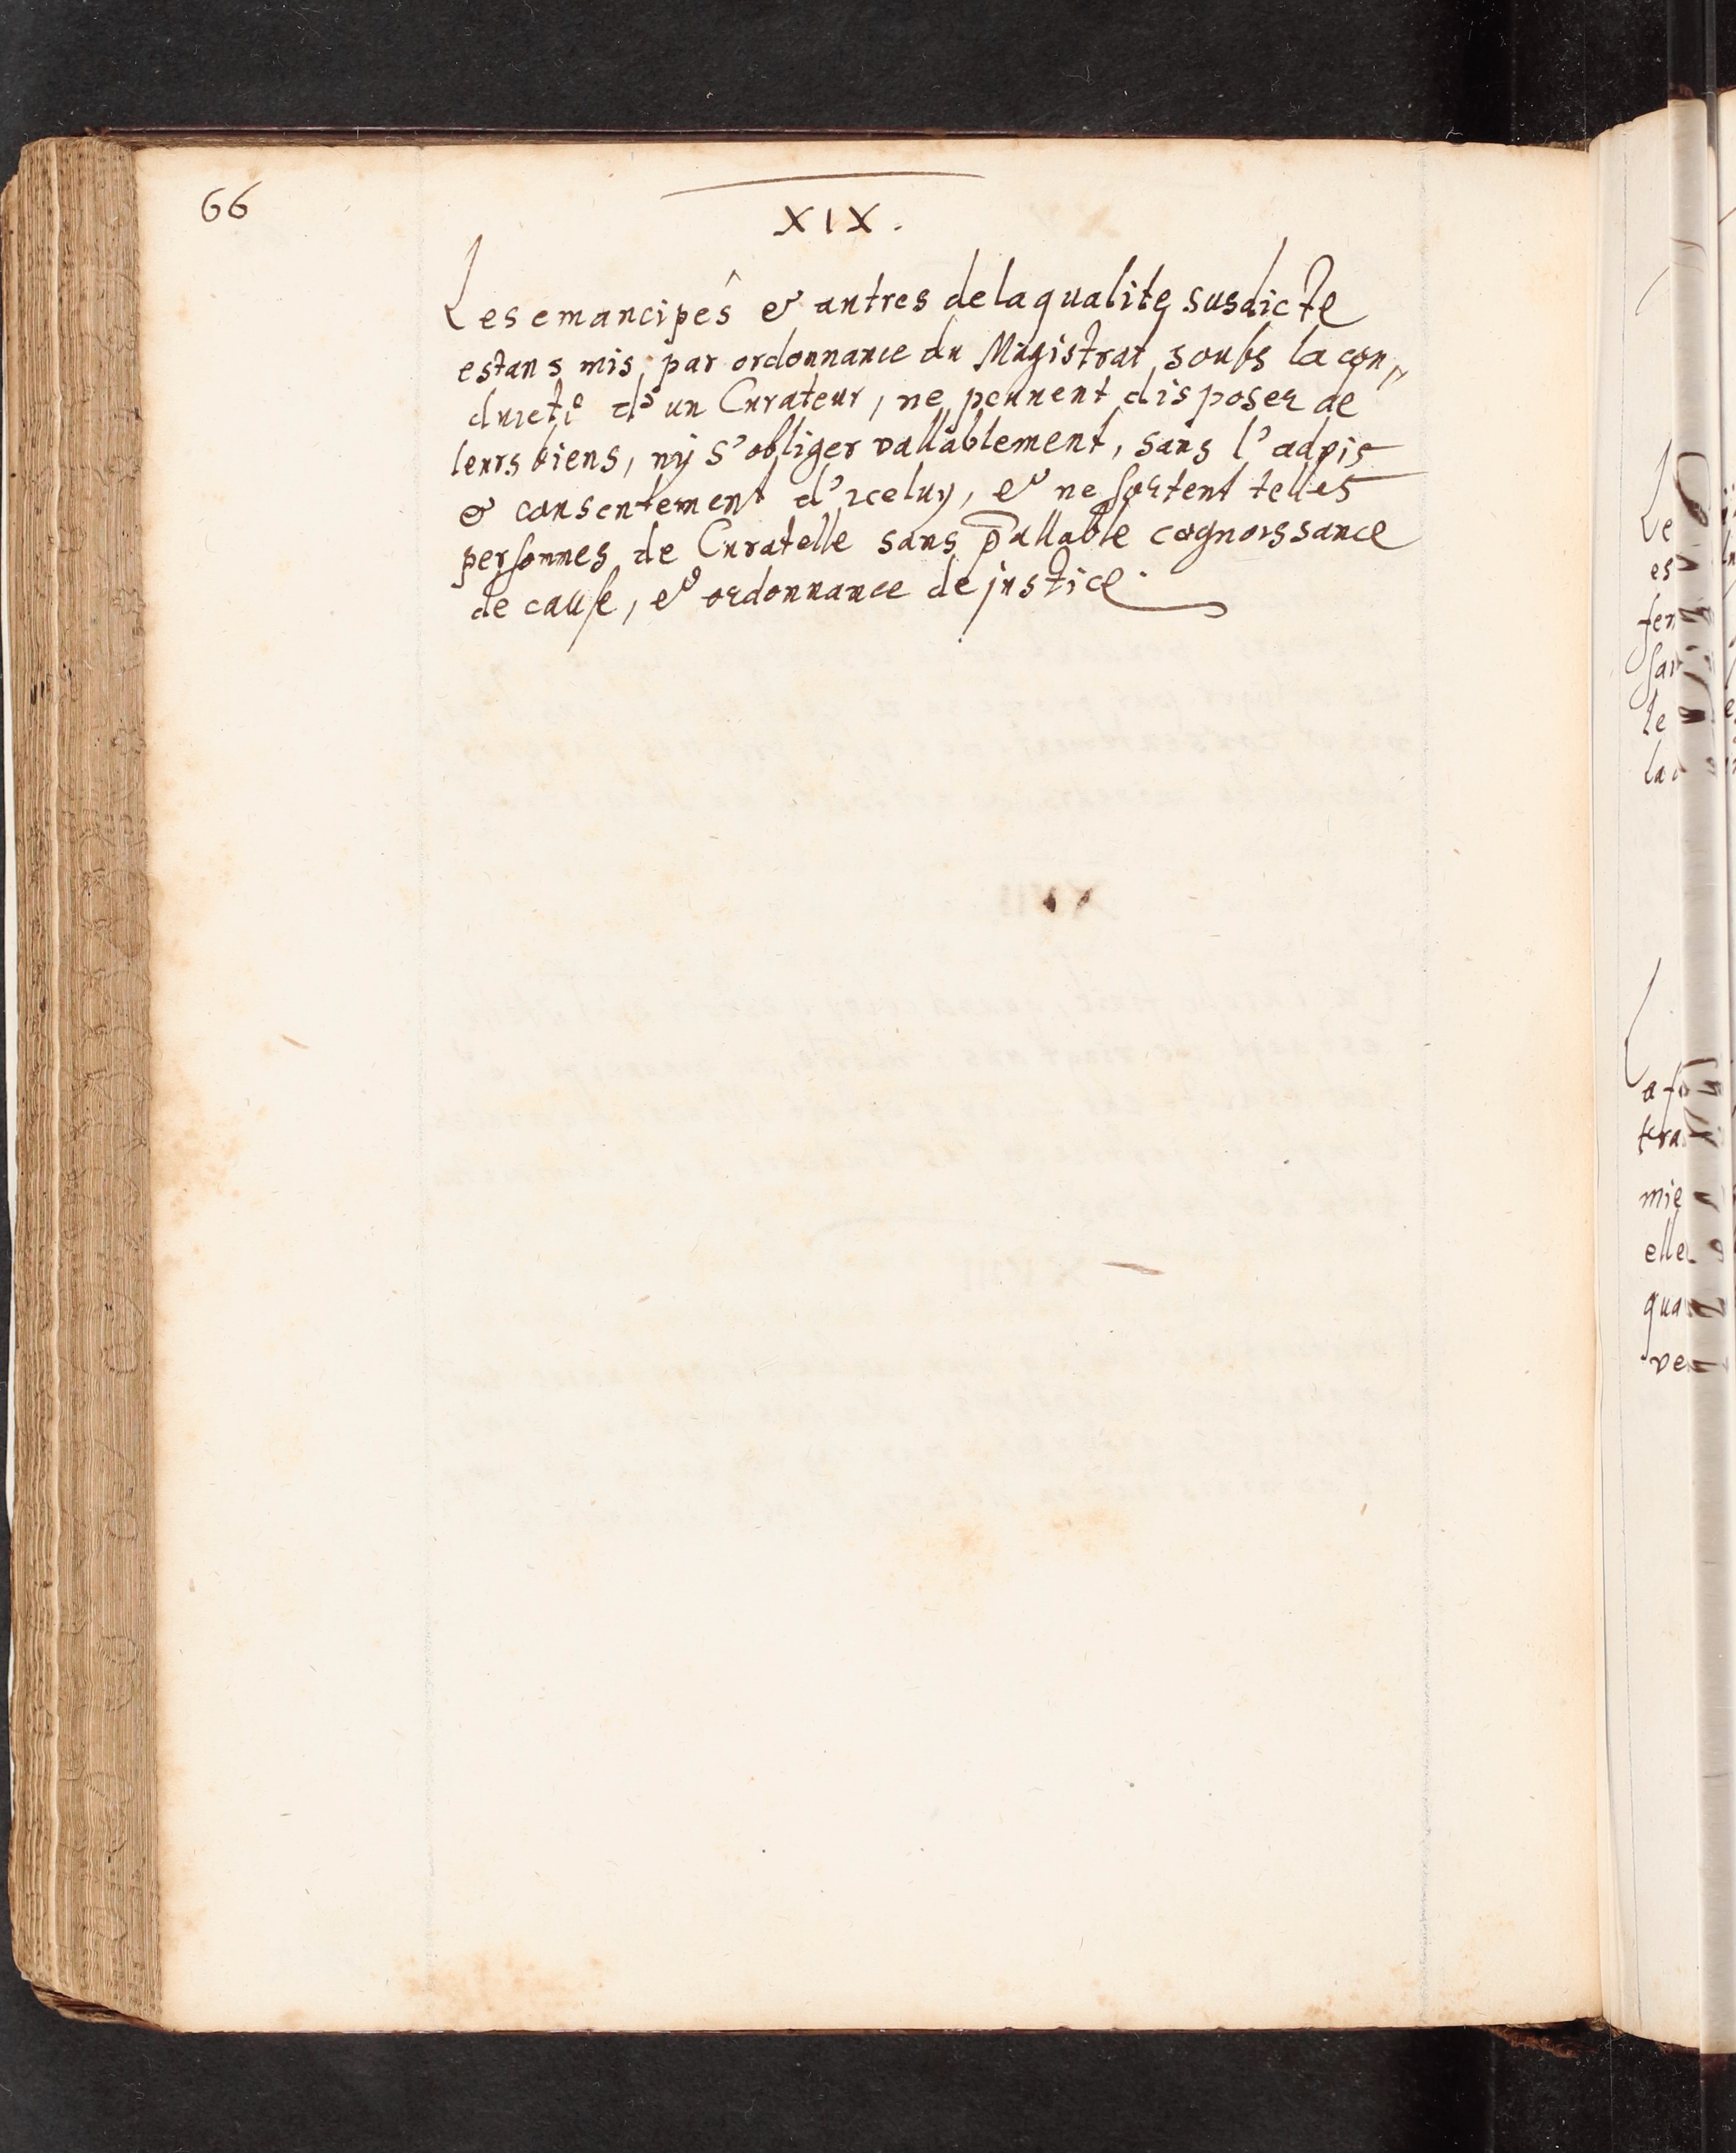 66
XIX.
Les emancipés & autres de la qualité susdicte
estans mis par ordonnance du Magistrat soubs la con„
duicte d'un Curateur, ne peuuent disposer de
leurs biens, ny s'obliger vallablement, sans l'advis
& consentement d'iceluy, & ne sortent telles
personnes de Curatelle sans vallable cognoissance
de cause, & ordonnance de justice.
Le
es
fer
san
le
la
a fo
tra
mie
elle
qua
ven